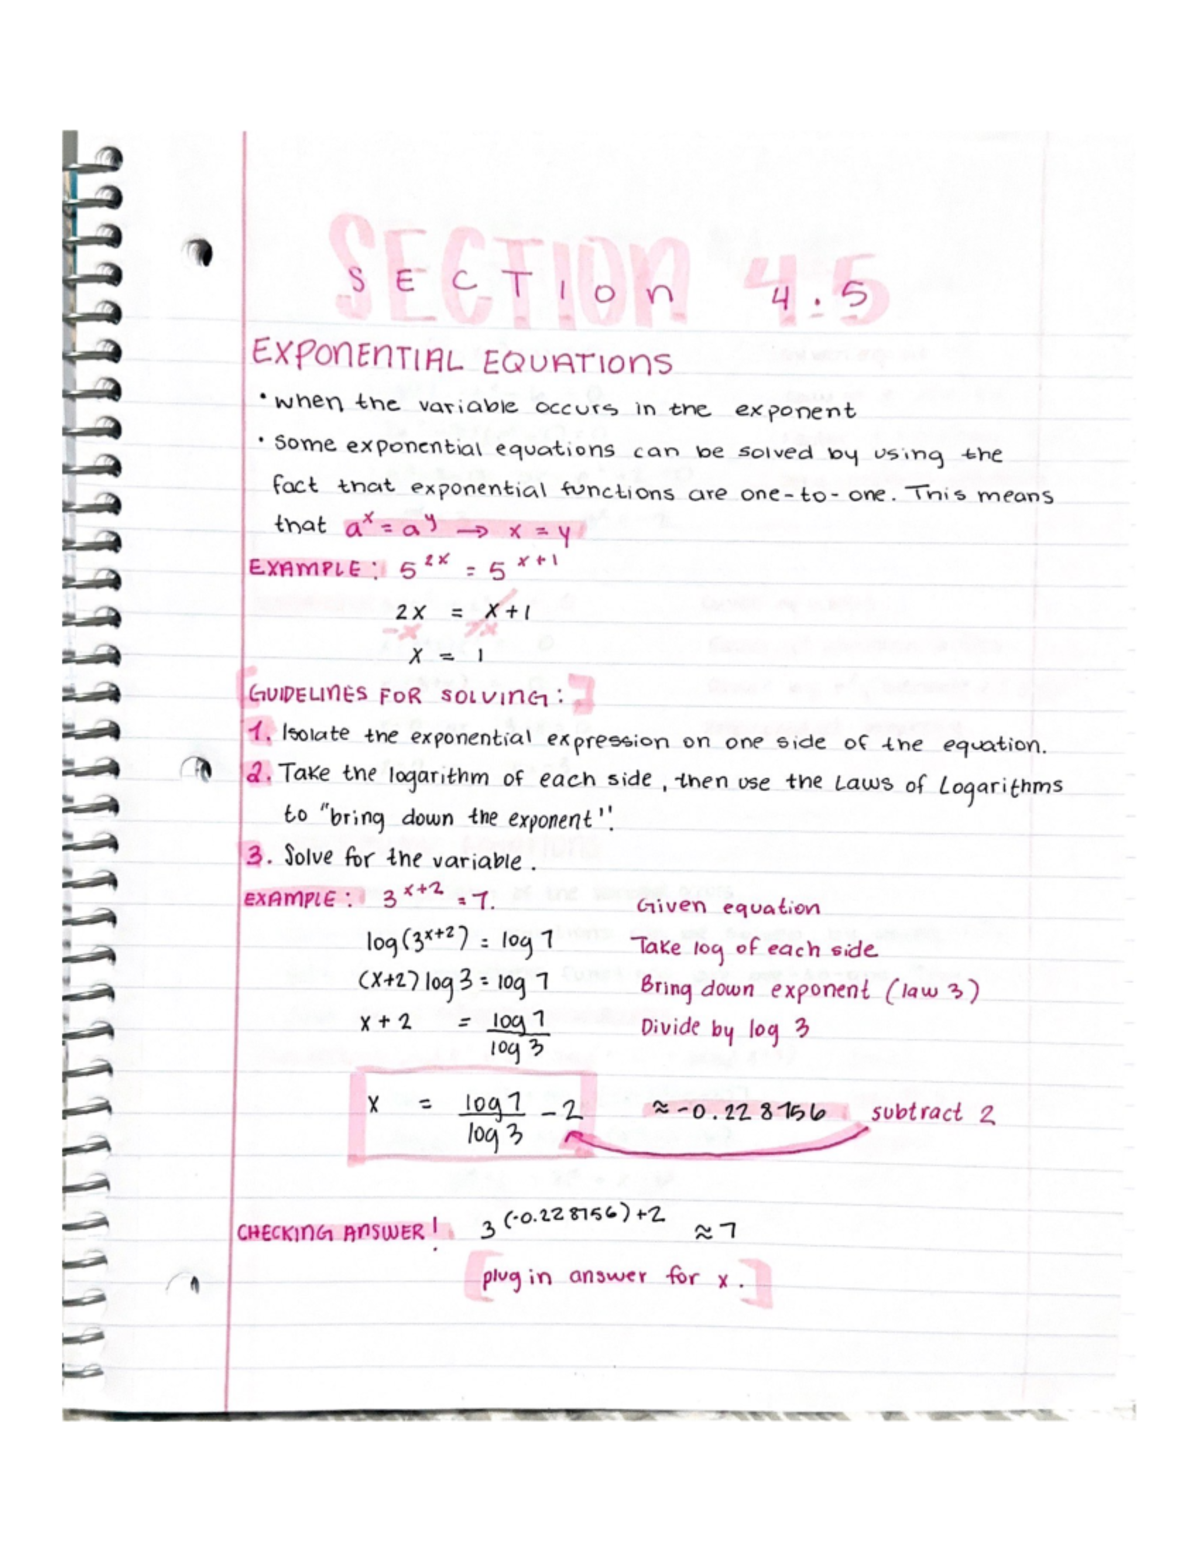 SECTION 4.5
SECTION 4.5
EXPONENTIAL EQUATIONS
• when the variable occurs in the exponent
• some exponential equations can be solved by using the
fact that exponential functions are one-to-one. This means
that a^x = a^y → x = y
EXAMPLE: 5^2x = 5^x+1
2x = x+1
-x -x
x = 1
[GUIDELINES FOR SOLVING:]
1. Isolate the exponential expression on one side of the equation.
2. Take the logarithm of each side, then use the Laws of Logarithms
to "bring down the exponent".
3. Solve for the variable.
EXAMPLE: 3^x+2 = 7. Given equation
log(3^x+2) = log 7 Take log of each side
(x+2) log 3 = log 7 Bring down exponent (law 3)
x + 2 = log 7 / log 3 Divide by log 3
x = log 7 / log 3 - 2 ≈ -0.228756 subtract 2
CHECKING ANSWER! 3^(-0.228756)+2 ≈ 7
[plug in answer for x.]